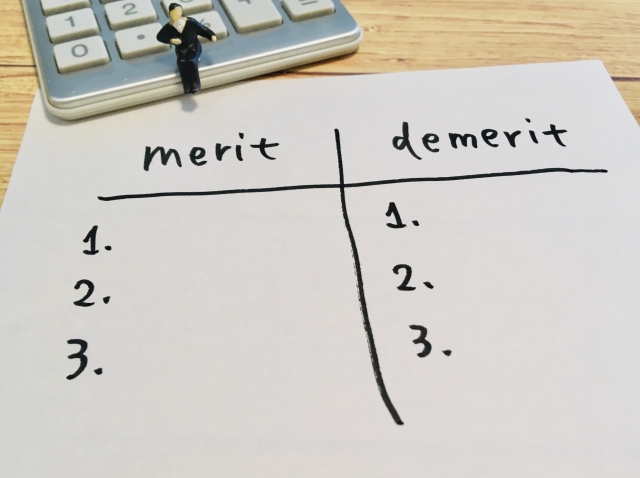 1 2
0 . %
=
merit demerit
1. 1.
2. 2.
3. 3.